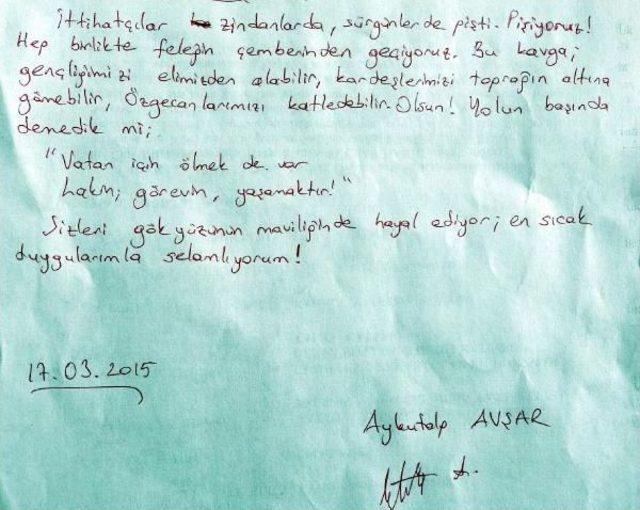 İttihatçılar zindanlarda, sürgünlerde pişti. Pişiyoruz!
Hep birlikte feleğin çemberinden geçiyoruz. Bu kavga;
gençliğimizi elimizden alabilir, kardeşlerimizi toprağın altına
gömebilir, Özgecanlarımızı katledebilir. Olsun! Yolun başında
demedik mi;
"Vatan için ölmek de var
Lakin; görevin, yaşamaktır!"
Sizleri gökyüzünün maviliğinde hayal ediyor; en sıcak
duygularımla selamlıyorum!
17.03.2015
Aykutalp AVŞAR